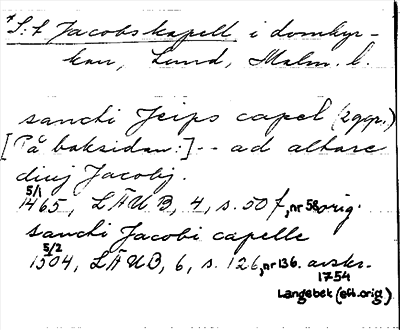 *S:t Jacobs kapell i domkyr-
kan, Lund, Malm. l.
sancti Jeips capel (2 ggr.)
[På baksidan:] -- ad altare
diuj Jacobj.
5/1
1465, LÄUB, 4, s. 50 f, nr 58 orig.
sancti Jacobi capelle
5/2
1504, LÄUB, 6, s. 126, nr 136. avskr.
1754
Langebek (eft. orig.)